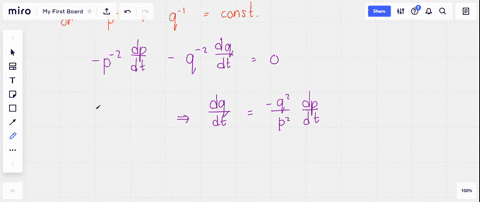 miro My First Board Share
or p q⁻¹ = const.
-p⁻² dp/dt - q⁻² dq/dt = 0
⇒ dq/dt = -q²/p² dp/dt
100%